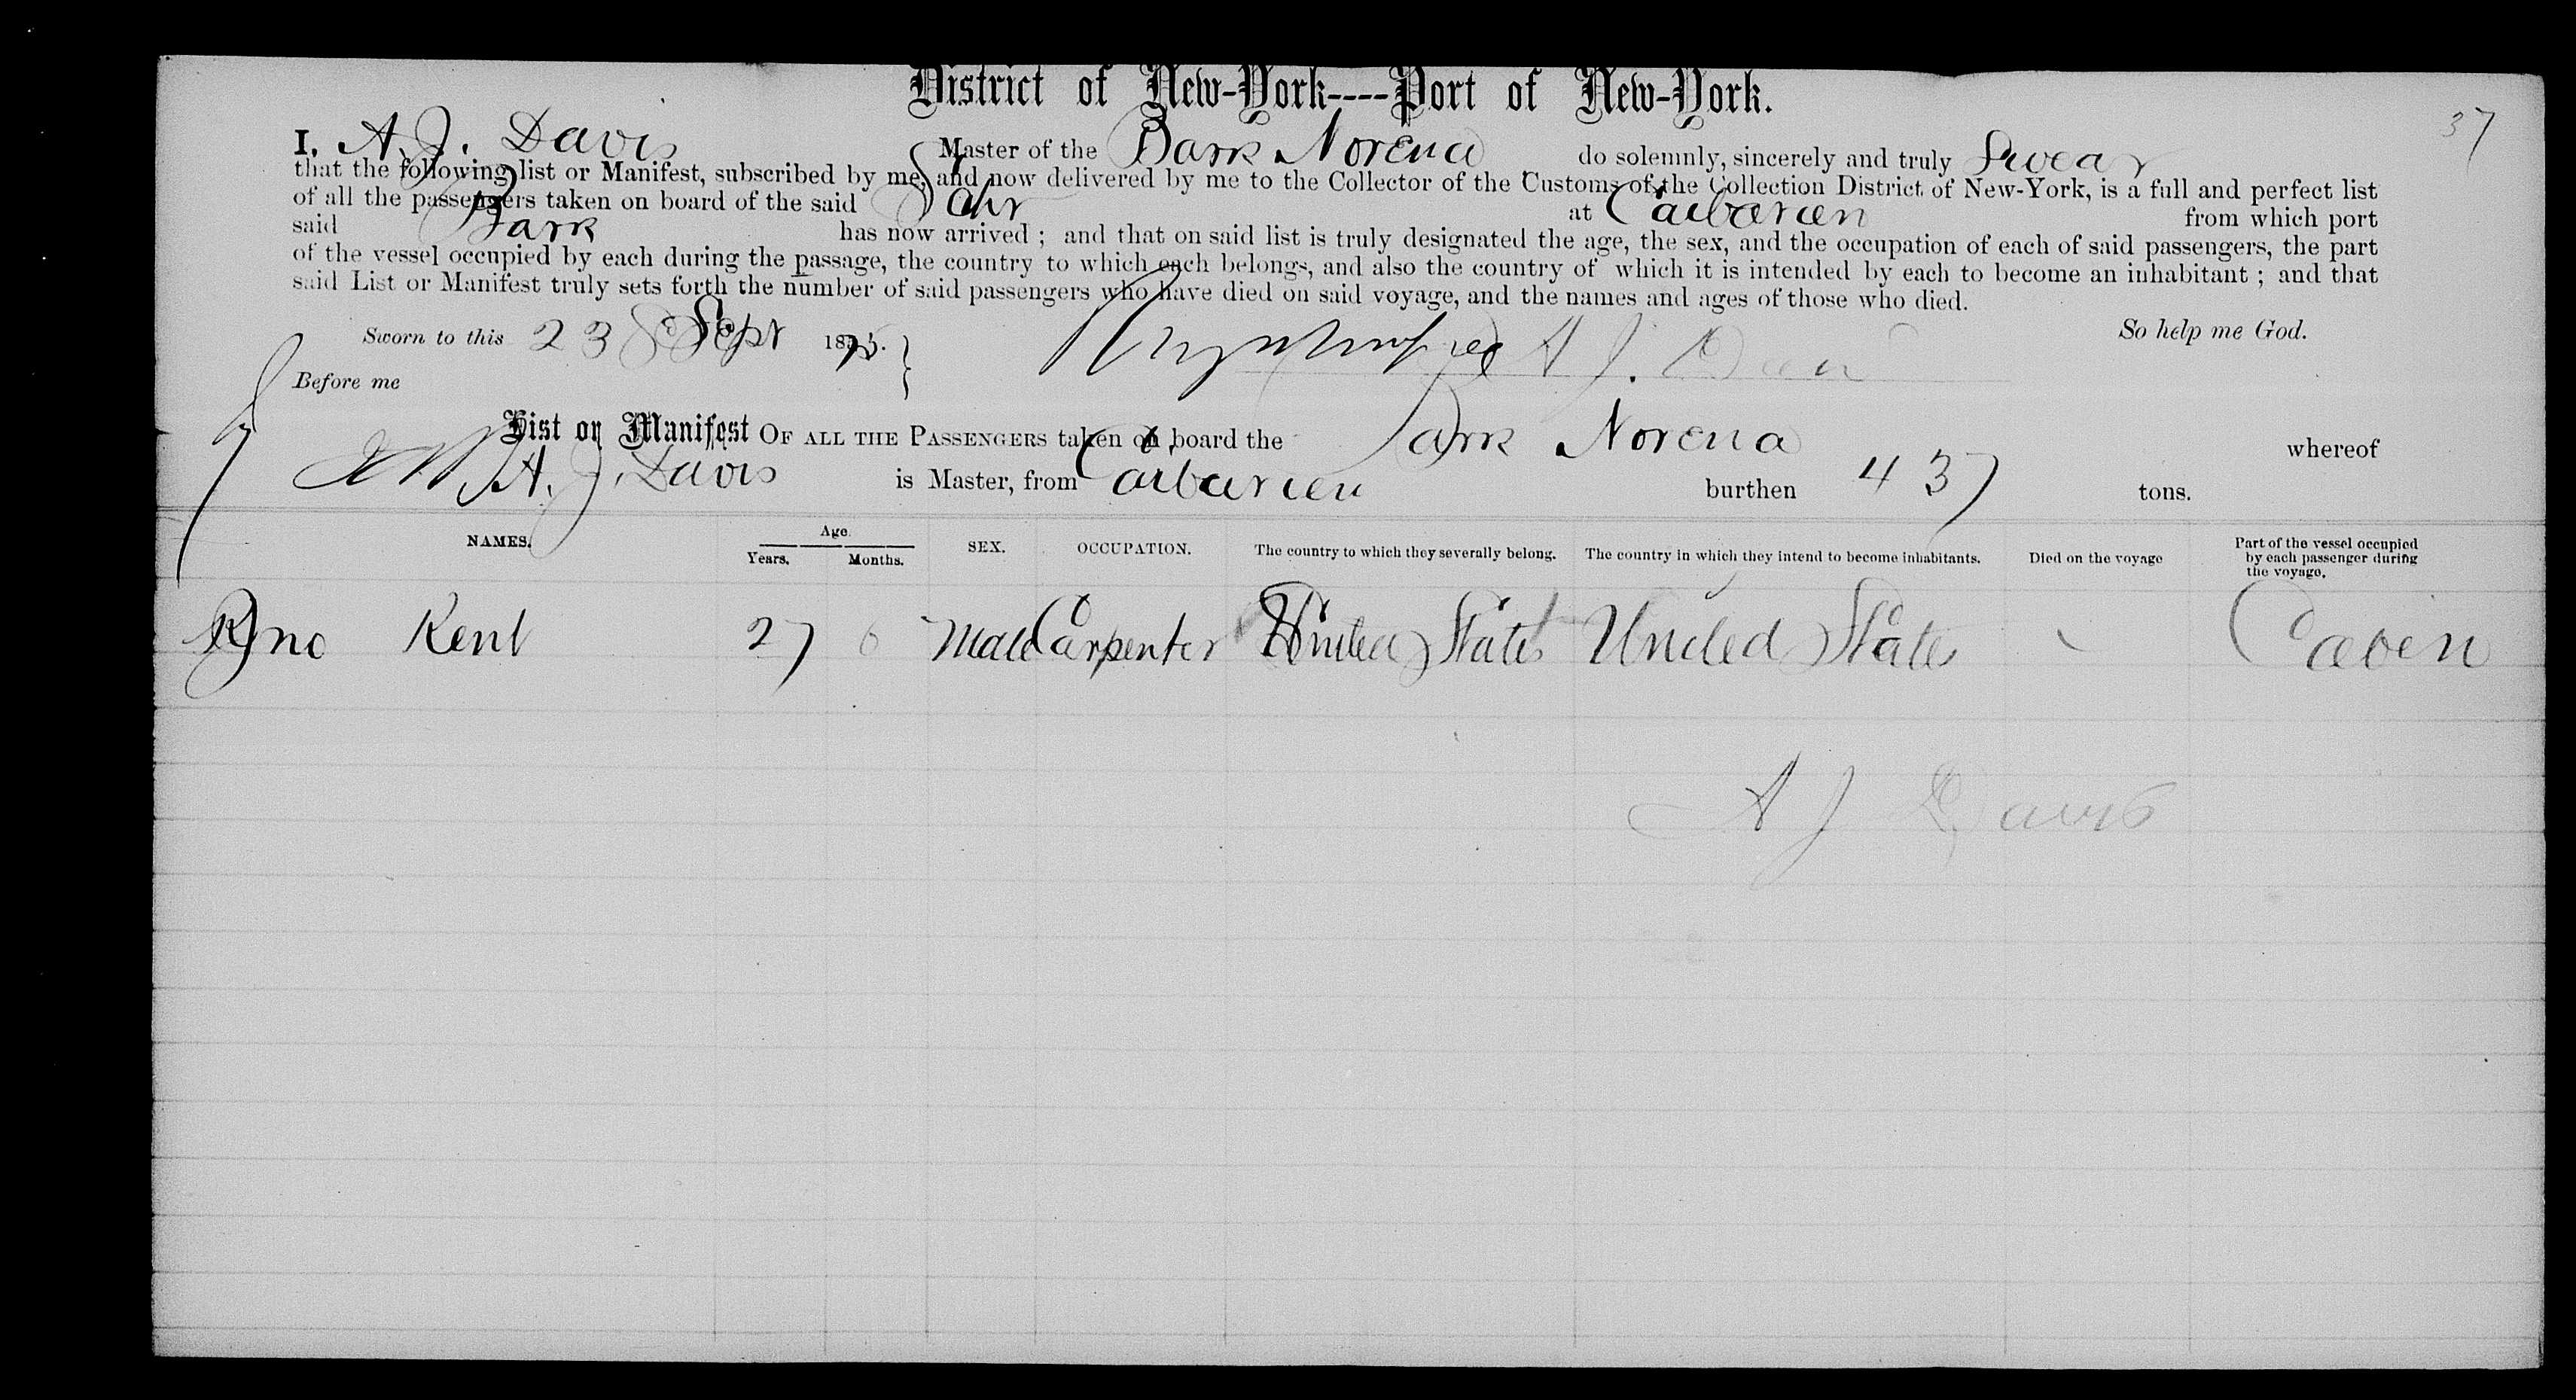 District of New-York----Port of New-York.
37
I, A. J. Davis Master of the Bark Norena do solemnly, sincerely and truly Swear
that the following list or Manifest, subscribed by me, and now delivered by me to the Collector of the Customs of the Collection District of New-York, is a full and perfect list
of all the passengers taken on board of the said Schr at Caibarien from which port
said Bark has now arrived ; and that on said list is truly designated the age, the sex, and the occupation of each of said passengers, the part
of the vessel occupied by each during the passage, the country to which each belongs, and also the country of which it is intended by each to become an inhabitant ; and that
said List or Manifest truly sets forth the number of said passengers who have died on said voyage, and the names and ages of those who died.
Sworn to this 23 Sept 1875. So help me God.
Before me A J.
List or Manifest OF ALL THE PASSENGERS taken on board the Bark Norena whereof
A. J. Davis is Master, from Caibarien burthen 437 tons.
NAMES. Age. Years. Months. SEX. OCCUPATION. The country to which they severally belong. The country in which they intend to become inhabitants. Died on the voyage Part of the vessel occupied by each passenger during the voyage.
Jno Kent 27 6 Male Carpenter United States United States Caben
A J Davis